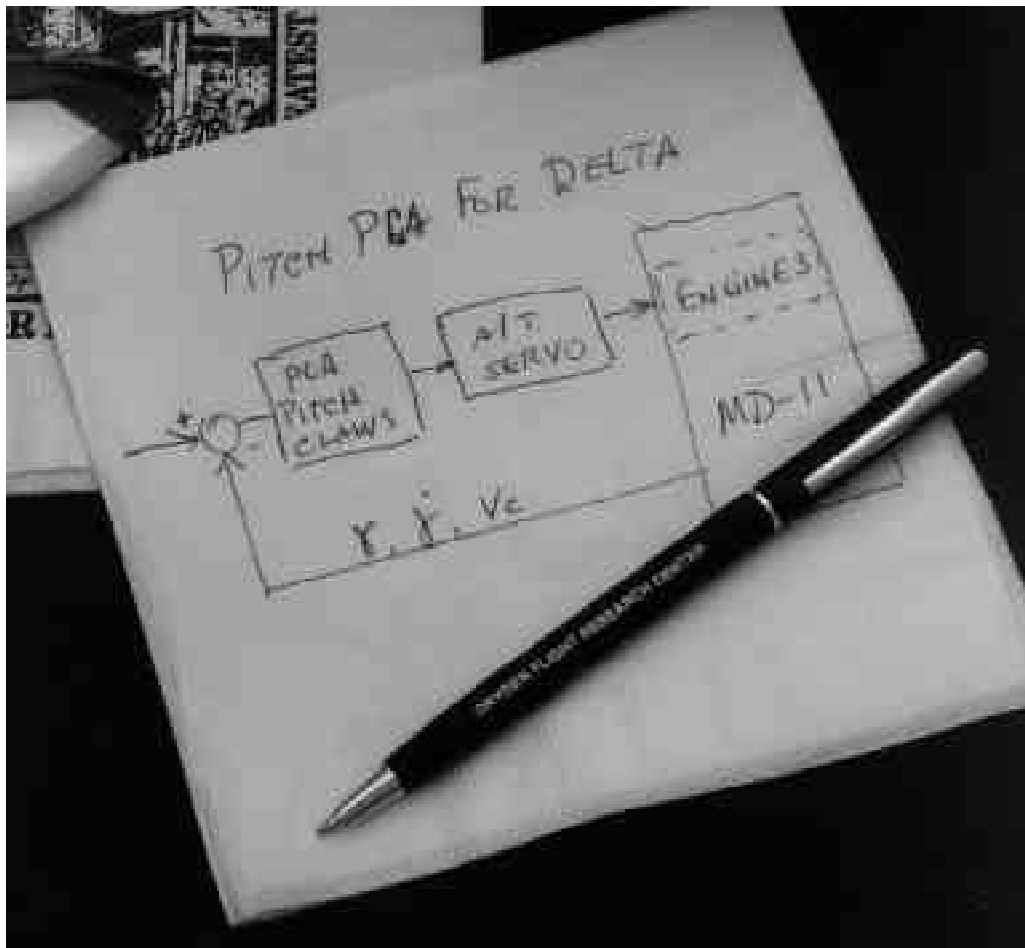 PITCH PCA FOR DELTA
PCA
PITCH
CLAWS
A/T
SERVO
ENGINES
MD-11
+
-
γ, γ̇, Vc
DRYDEN FLIGHT RESEARCH CENTER